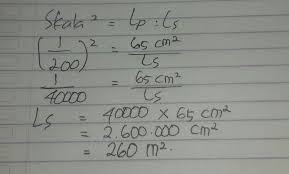 Skala² = Lp : Ls
(1/200)² = 65 cm²/Ls
1/40000 = 65 cm²/Ls
Ls = 40000 × 65 cm²
= 2.600.000 cm²
= 260 m².